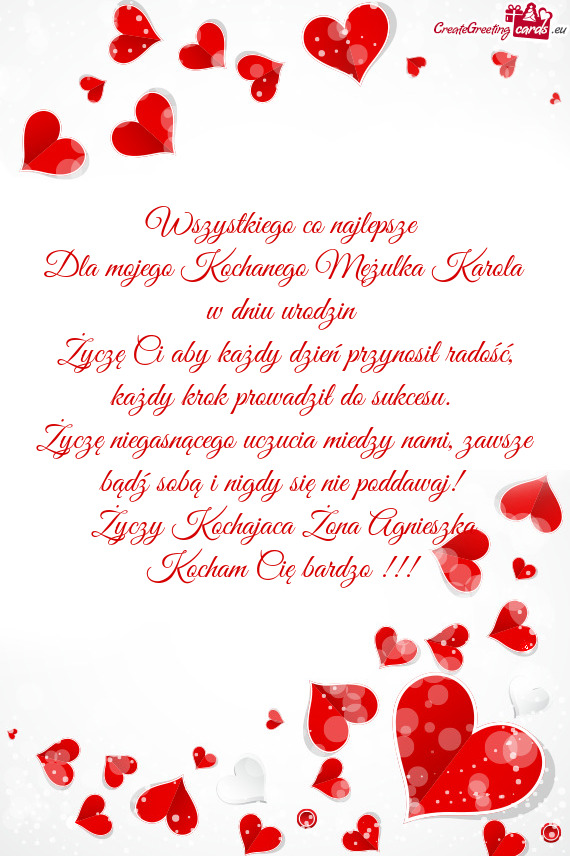 CreateGreeting cards .eu
Wszystkiego co najlepsze
Dla mojego Kochanego Mężulka Karola
w dniu urodzin
Życzę Ci aby każdy dzień przynosił radość,
każdy krok prowadził do sukcesu.
Życzę niegasnącego uczucia miedzy nami, zawsze
bądź sobą i nigdy się nie poddawaj!
Życzy Kochajaca Żona Agnieszka
Kocham Cię bardzo !!!